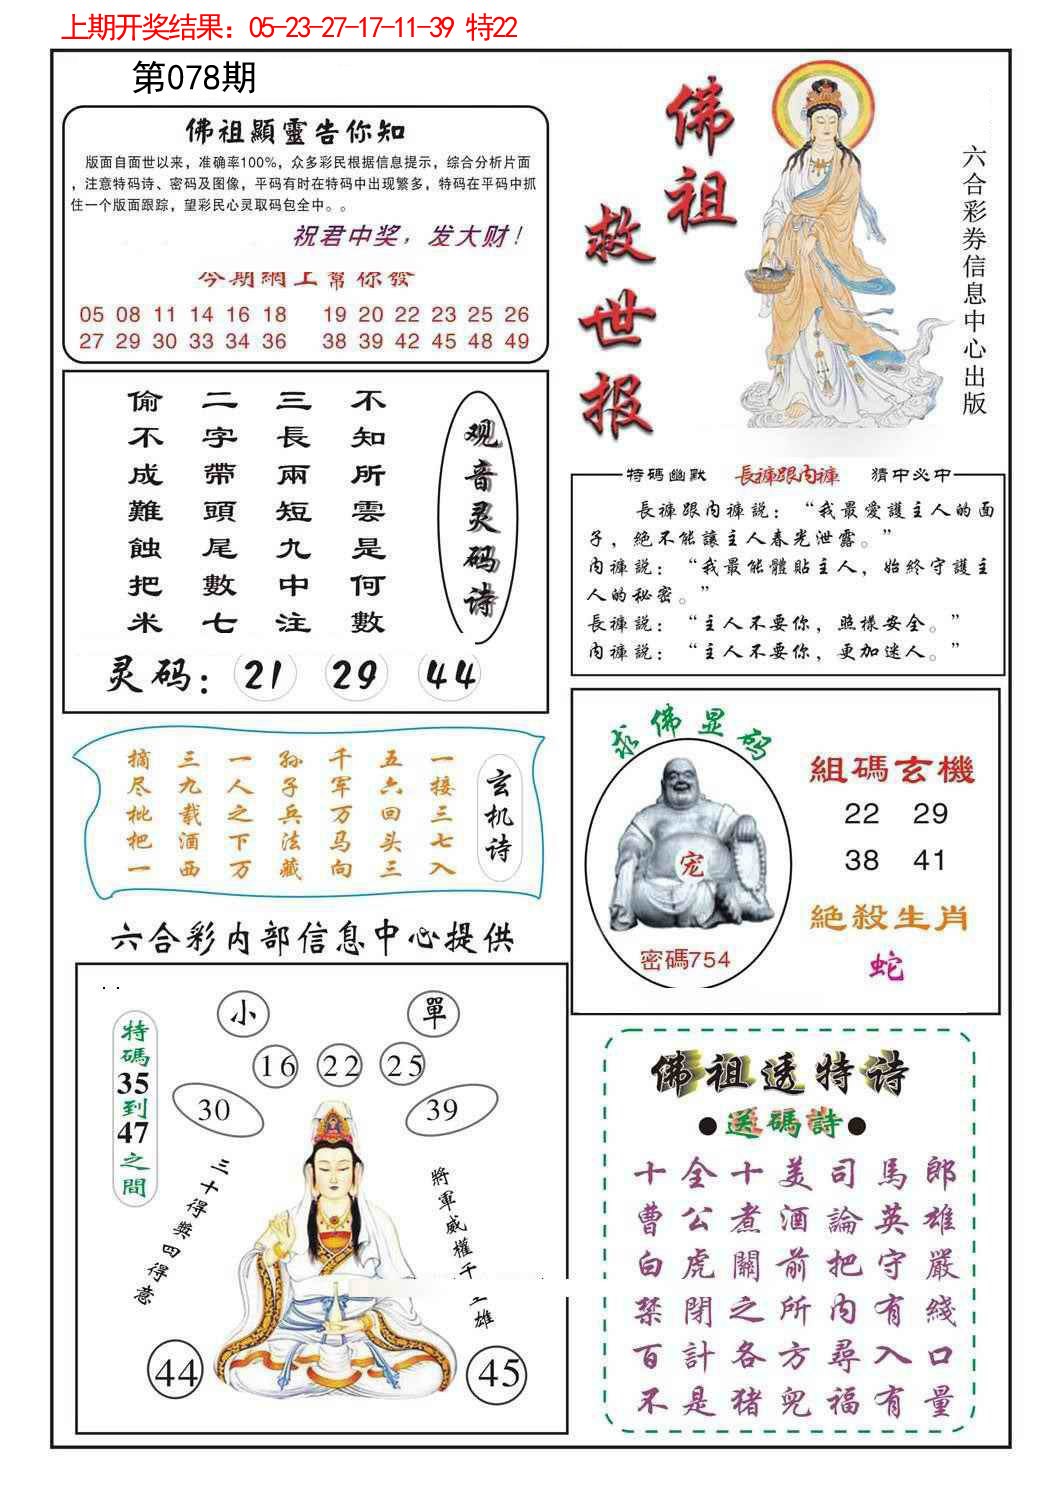 上期开奖结果：05-23-27-17-11-39 特22
第078期
佛祖顯靈告你知
版面自面世以来，准确率100%，众多彩民根据信息提示，综合分析片面
，注意特码诗、密码及图像，平码有时在特码中出现繁多，特码在平码中抓
住一个版面跟踪，望彩民心灵取码包全中。。
祝君中奖，发大财！
今期網上幫你發
05 08 11 14 16 18 19 20 22 23 25 26
27 29 30 33 34 36 38 39 42 45 48 49
佛祖
救世报
六合彩券信息中心出版
观音灵码诗
不知所雲是何數
三長兩短九中注
二字帶頭尾數七
偷不成難蝕把米
灵码：21 29 44
特碼幽默 長褲跟內褲 猜中必中
長褲跟內褲説：“我最愛護主人的面
子，絶不能讓主人春光泄露。”
內褲説：“我最能體貼主人，始終守護主
人的秘密。”
長褲説：“主人不要你，照樣安全。”
內褲説：“主人不要你，更加迷人。”
玄机诗
一接三七入
五六回头三
千军万马向
孙子兵法藏
一人之下万
三九载酒西
摘尽枇杷一
求佛显码
宠
密碼754
組碼玄機
22 29
38 41
絕殺生肖
蛇
六合彩内部信息中心提供
特碼35到47之間
小 單
16 22 25
30 39
三十得獎四得意
將軍威權千
雄
44 45
佛祖透特诗
●送碼詩●
十全十美司馬郎
曹公煮酒論英雄
白虎關前把守嚴
禁閉之所内有綫
百計各方尋入口
不是猪兜福有量